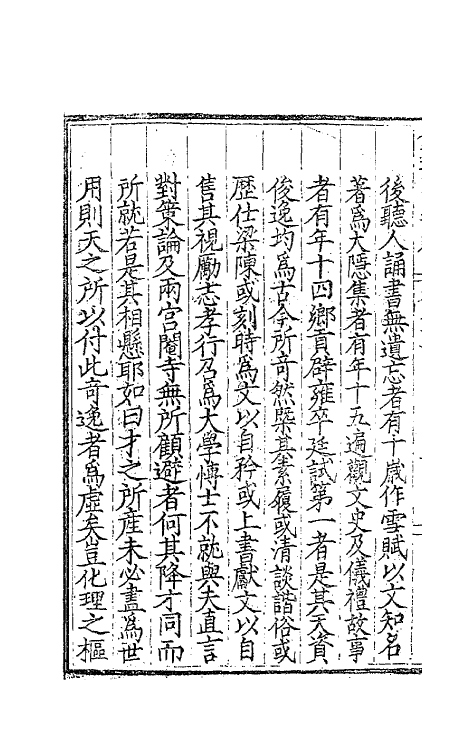 後聽人誦書無遺忘者有十歲作雪賦以文知名
著爲大隱集者有年十五遍觀文史及儀禮故事
者有年十四鄉貢辟雍卒廷試第一者是其天資
俊逸均爲古今所奇然槩其素履或清談諧俗或
歷仕梁陳或刻時爲文以自矜或上書獻文以自
售其視勵志孝行召爲大學博士不就與夫直言
對策論及兩宮閹寺無所顧避者何其降才同而
所就若是其相懸耶如曰才之所産未必盡爲世
用則天之所以付此奇逸者爲虛矣豈化理之樞